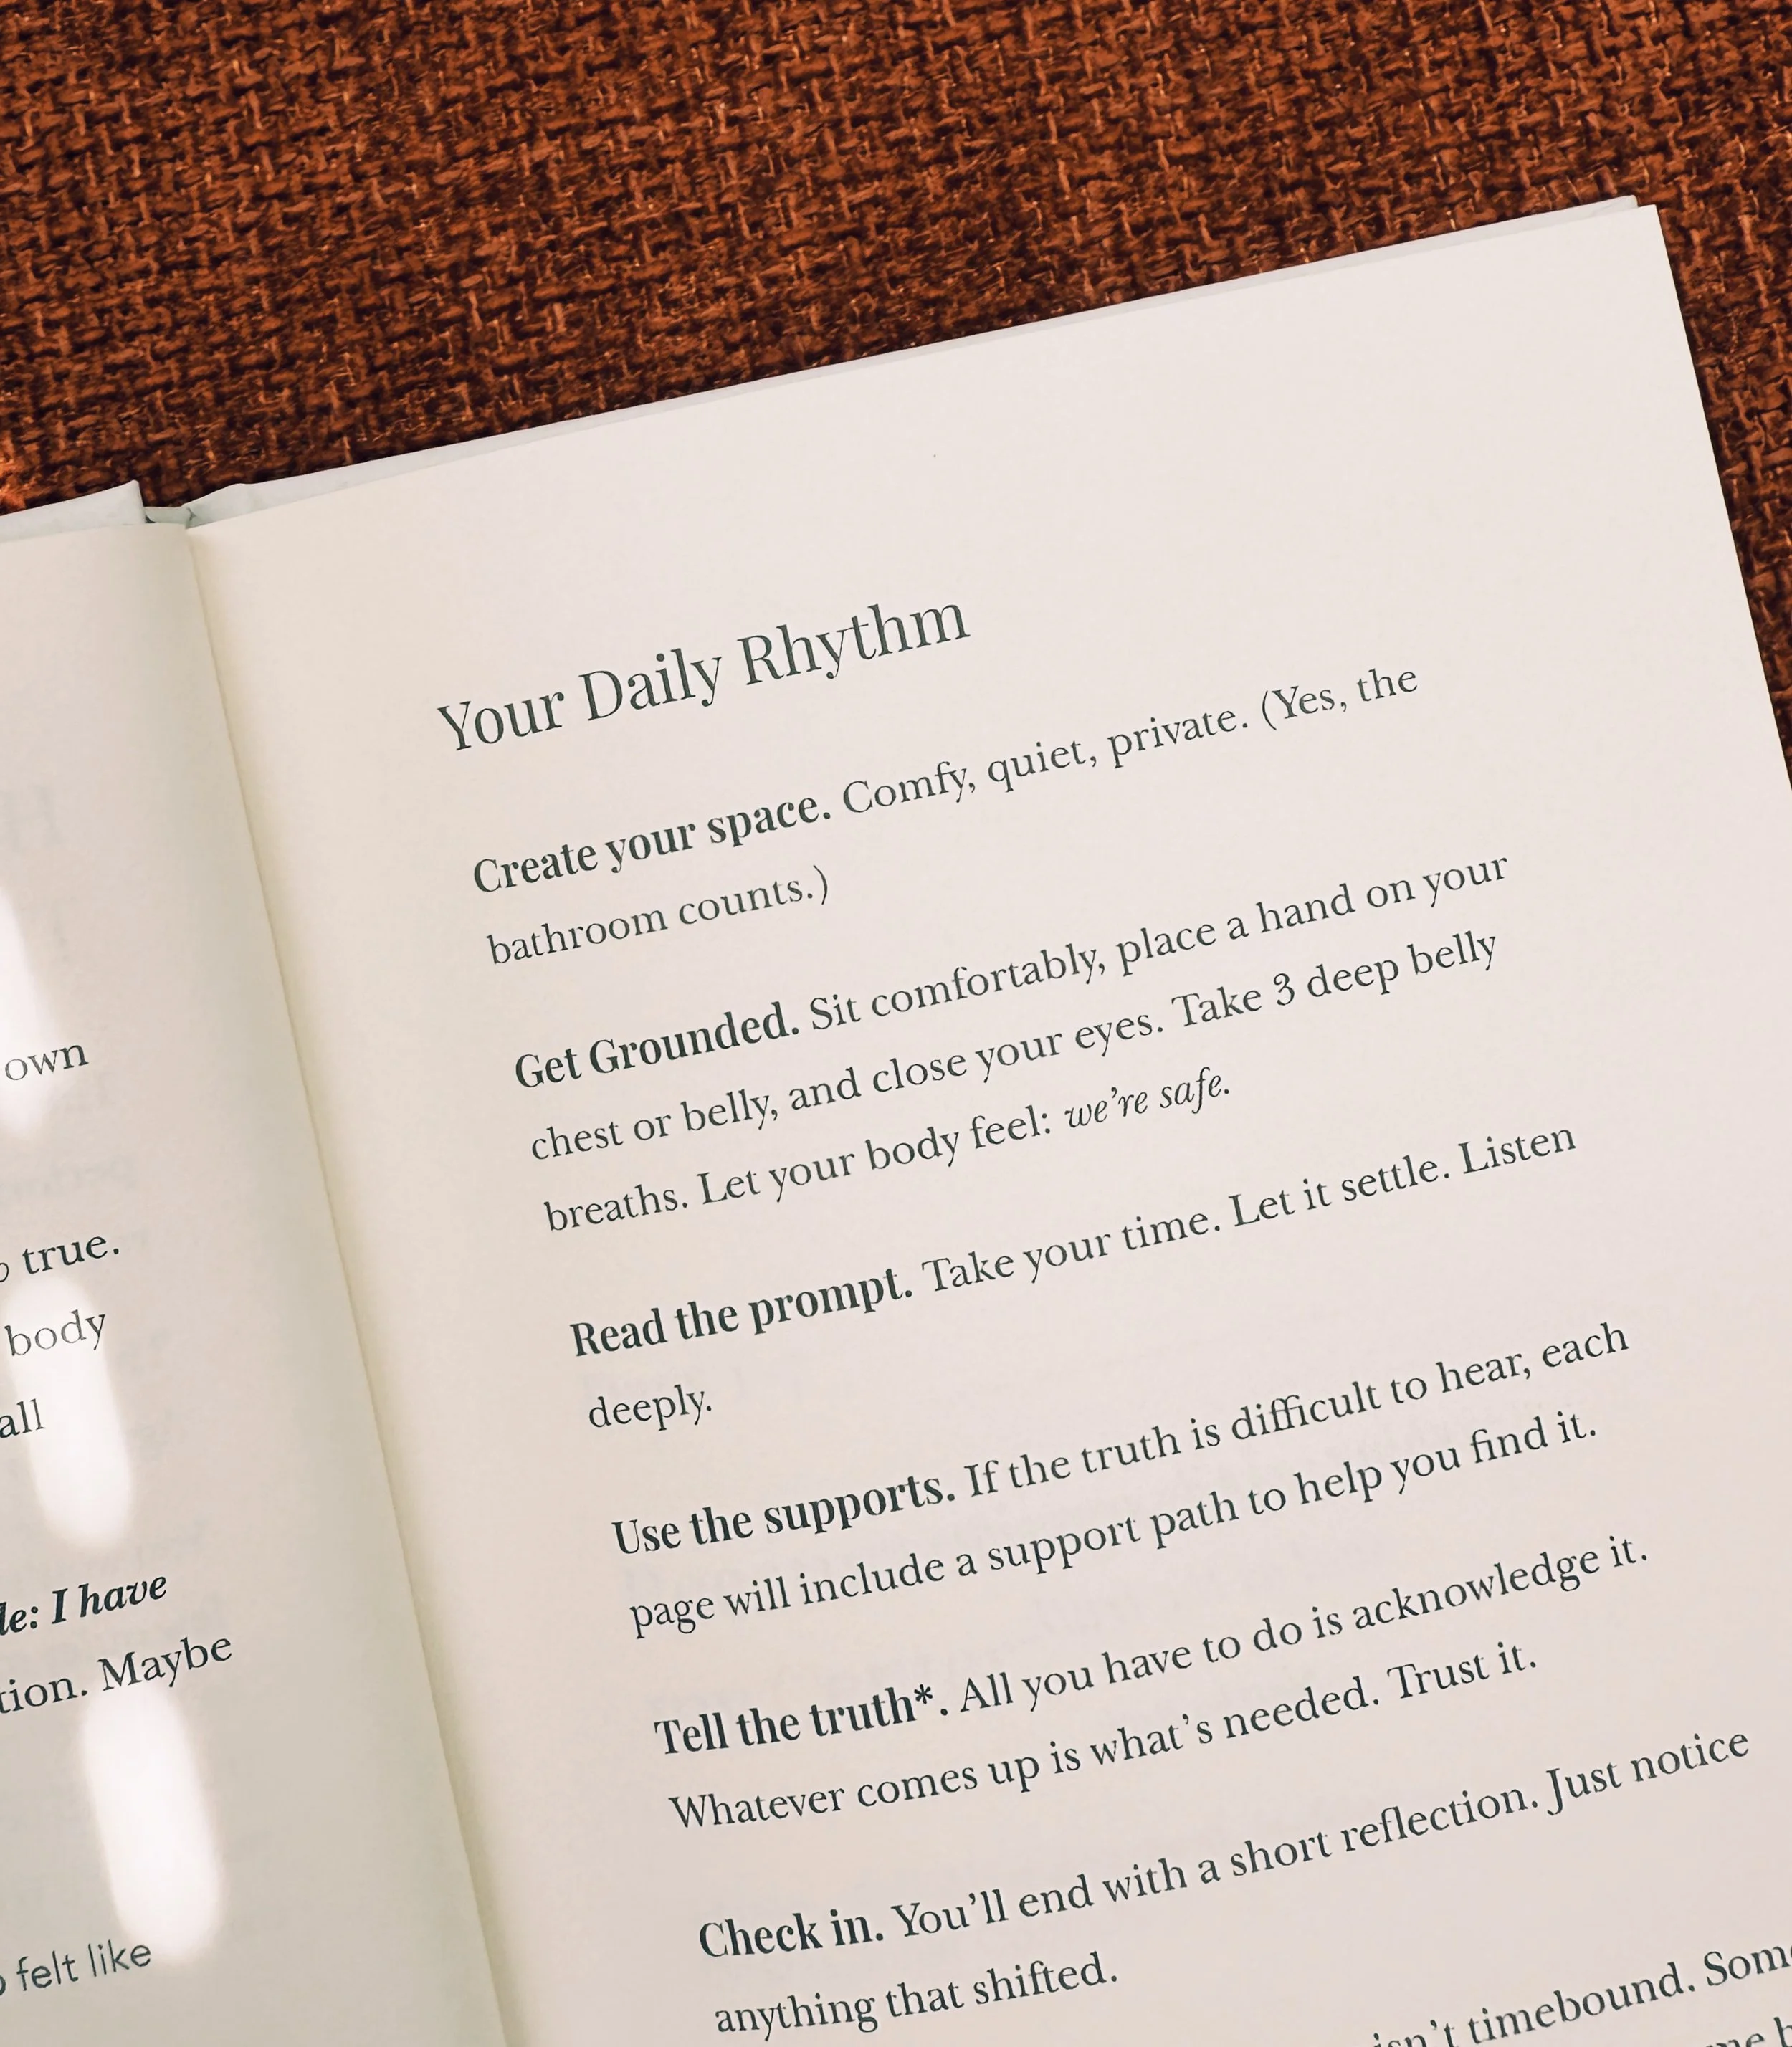 own
true.
body
all
I have
Maybe
felt like
Your Daily Rhythm
Create your space. Comfy, quiet, private. (Yes, the
bathroom counts.)
Get Grounded. Sit comfortably, place a hand on your
chest or belly, and close your eyes. Take 3 deep belly
breaths. Let your body feel: we're safe.
Read the prompt. Take your time. Let it settle. Listen
deeply.
Use the supports. If the truth is difficult to hear, each
page will include a support path to help you find it.
Tell the truth*. All you have to do is acknowledge it.
Whatever comes up is what's needed. Trust it.
Check in. You'll end with a short reflection. Just notice
anything that shifted.
isn't timebound.